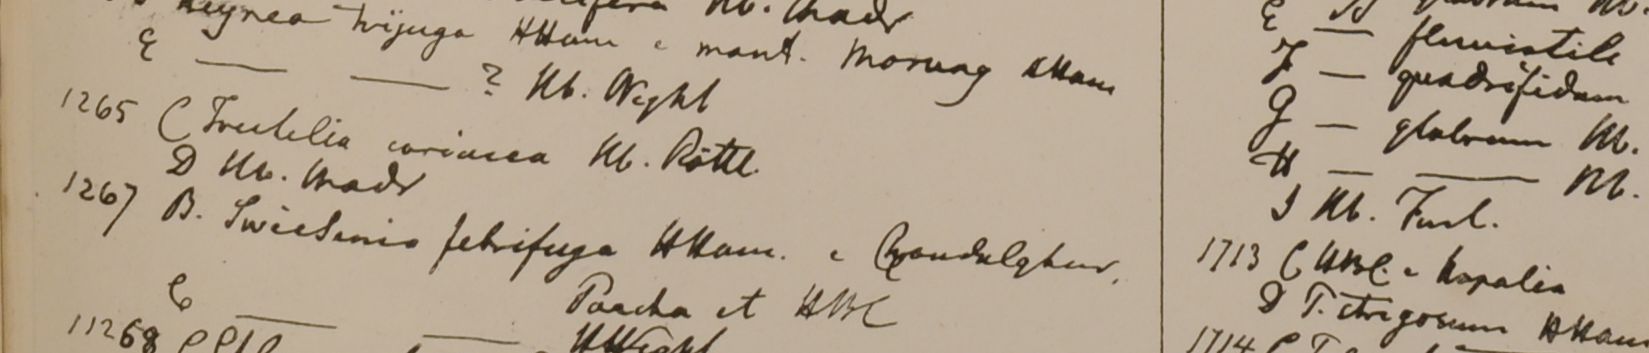 Hb. Madr
Heynea trijuga HHam e mont. Morung HHam
E — — ? Hb. Wight
1265 C Trichilia coriacea Hb. Rottl.
D Hb. Madr
1267 B. Swietenia febrifuga HHam. e Gandulghur,
Parcha et HBC
C — — HWight
11268 C
E — glabrum Hb.
F — fluviatile
— quadrifidum
G — glabrum Hb.
H — — Hb.
I Hb. Finl.
1713 C HBC. e Napalia
D T. strigosum HHam
1714 C T